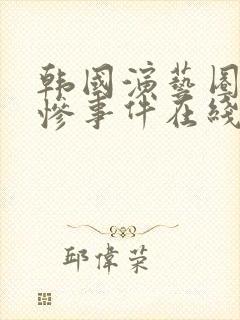 韩国演艺圈
惨事件在线
邱偉荣